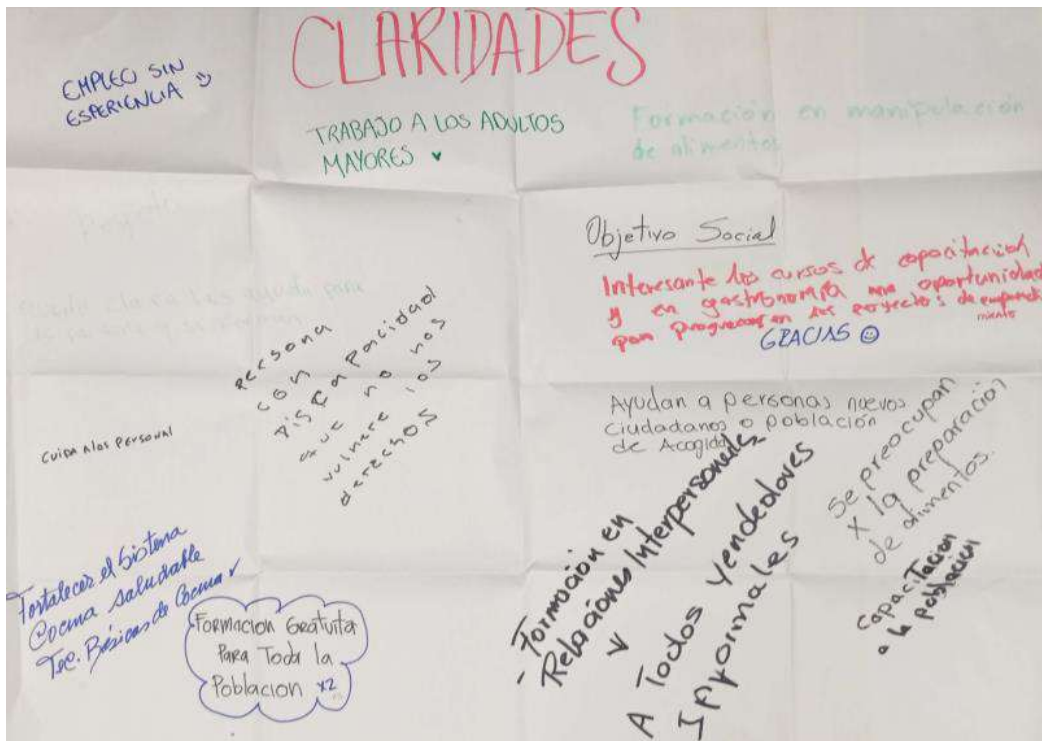 CLARIDADES
EMPLEO SIN
ESPERIENCIA
TRABAJO A LOS ADULTOS
MAYORES
Formación en manipulación
de alimentos
Objetivo Social
Interesante los cursos de capacitacion
y en gastronomía una oportunidad
para progresar en los proyectos de
GRACIAS
persona
con
DISCAPACIDAD
que no nos
vulnere los
derechos
CUIDA A los Personal
Ayudan a personas nuevos
Ciudadanos o población
de Acogida
Se preocupan
x la preparación
de alimentos.
Fortalecer el Sistema
Cocina saludable
Tec. Básicas de Cocina
FORMACION GRATUITA
PARA TODA la
Poblacion x2
- Formación en
Relaciónes Interpersonales
A Todos Vendedores
Informales
Capacitacion
a la poblacion